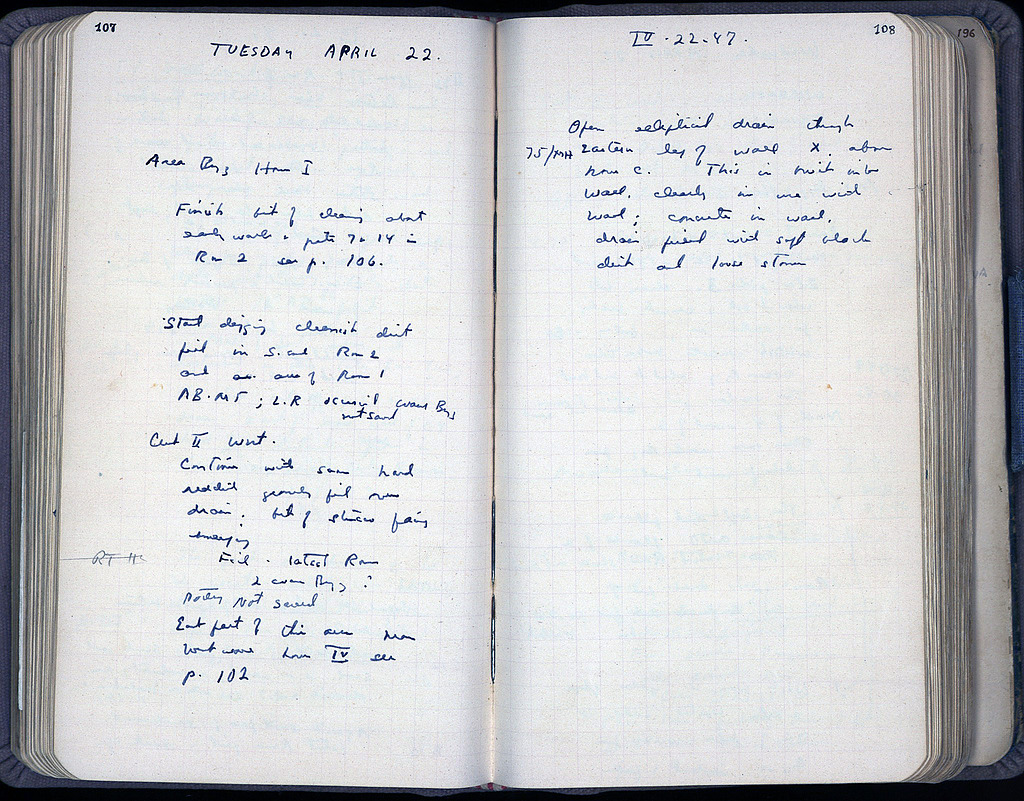 107
TUESDAY APRIL 22.
Area Byz House I
Finish bit of cleaning about
early walls + pits 7 to 14 in
Rm 2 see p. 106.
Start digging cleanish dirt
fill in S. end Rm 2
and area of Rm 1
AB. M5 ; L.R occasional coarse Byz
not saved
Cut II West.
Continue with same hard
reddish gravelly fill over
drain; bit of stucco facing
emerging
Fill - latest Rom
2 coarse Byz ?
Pottery Not saved
RT HC
East part of this area from
West over house IV see
p. 102
108
IV.22.47.
Open elliptical drain through
75/ Eastern leg of wall X, above
house C. This is built into
wall, clearly in use with
wall; concrete in wall,
drain filled with soft black
dirt and loose stones
196